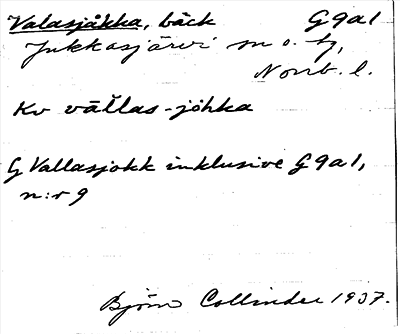 Valasjåkka, bäck G9a1
Jukkasjärvi sn o. tg,
Norrb. l.
Kv vāllas-johka
G Vallasjokk inklusive G9a1,
n:r 9
Björn Collinder 1937.